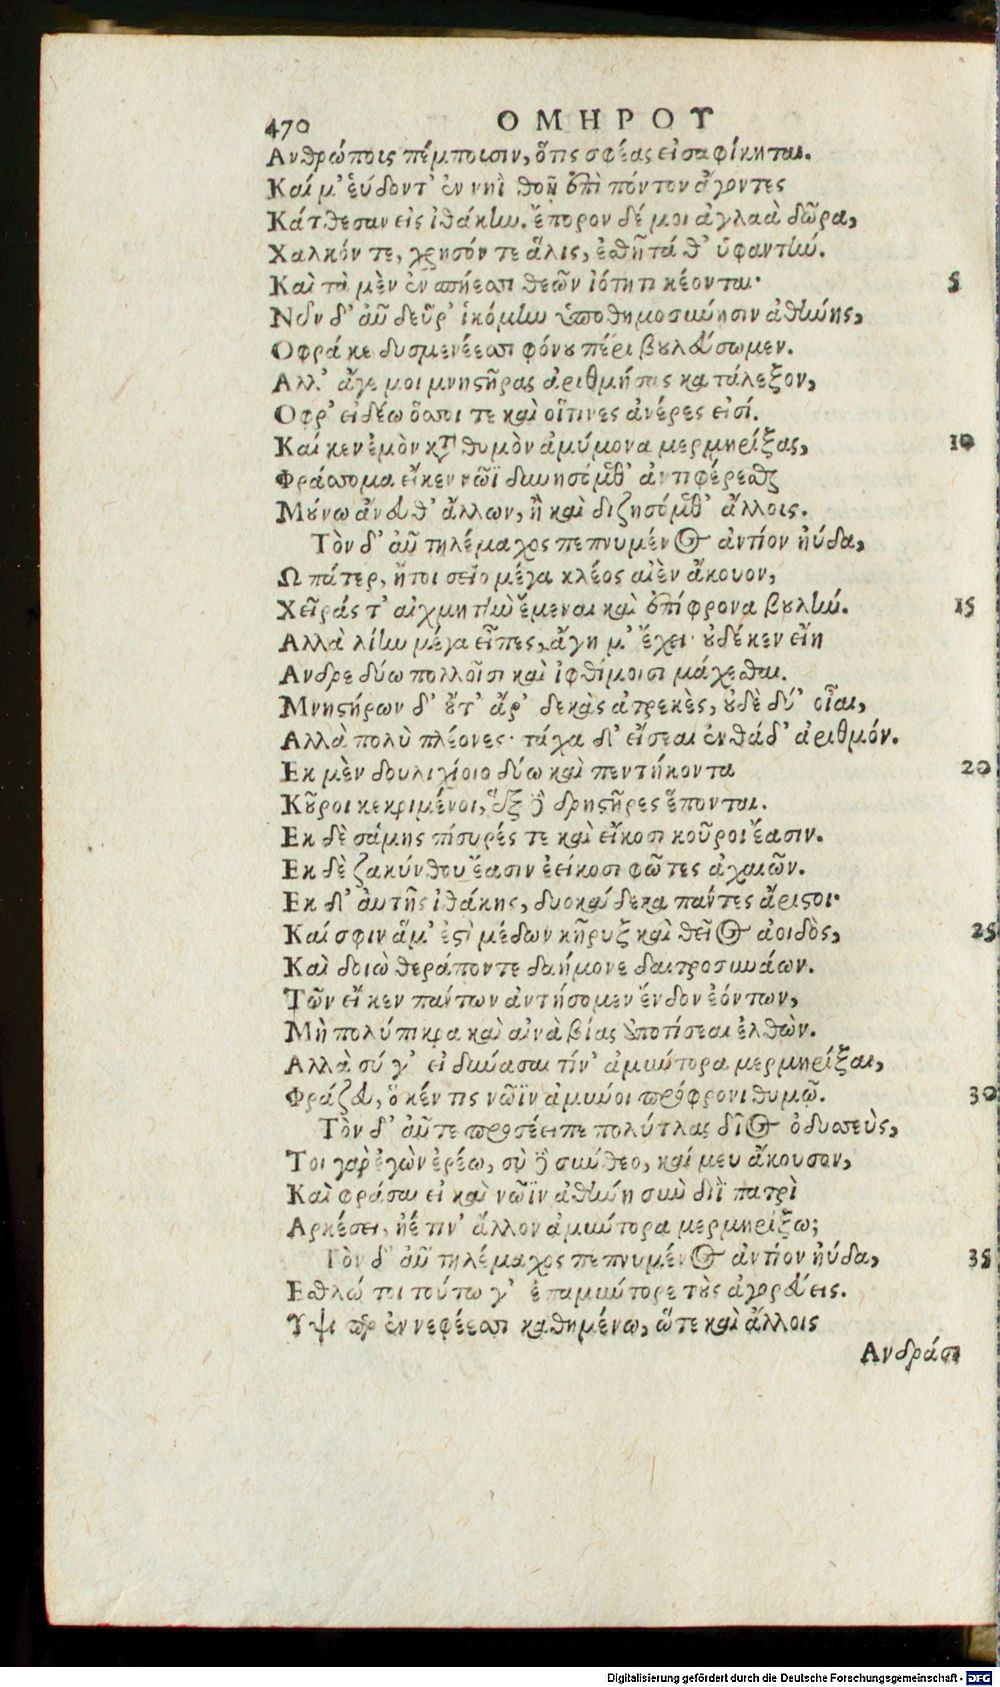 470 ΟΜΗΡΟΥ
Ανθρώποις πέμποισιν, ὅτις σφέας εἰσαφίκηται.
Καί μ' εὕδοντ' ἐν νηῒ θοῇ ἐπὶ πόντον ἄγοντες
Κάτθεσαν εἰς ἰθάκην. ἔπορον δέ μοι ἀγλαὰ δῶρα,
Χαλκόν τε, χρυσόν τε ἅλις, ἐσθῆτά θ' ὑφαντήν.
Καὶ τὰ μὲν ἐν σπήεσσι θεῶν ἰότητι κέονται· 5
Νῦν δ' αὖ δεῦρ' ἱκόμην ὑποθημοσύνησιν ἀθήνης,
Οφρά κε δυσμενέεσσι φόνου πέρι βουλεύσωμεν.
Αλλ' ἄγε μοι μνηστῆρας ἀριθμήσας κατάλεξον,
Οφρ' εἰδέω ὅσσοι τε καὶ οἵτινες ἀνέρες εἰσί.
Καί κεν ἐμὸν κατὰ θυμὸν ἀμύμονα μερμηρίξας, 10
Φράσσομαι εἴ κεν νῶϊ δυνησόμεθ' ἀντιφέρεσθαι
Μούνω ἄνευθ' ἄλλων, ἢ καὶ διζησόμεθ' ἄλλοις.
Τὸν δ' αὖ τηλέμαχος πεπνυμένος ἀντίον ηὔδα,
Ω πάτερ, ἤτοι σεῖο μέγα κλέος αἰὲν ἄκουον,
Χεῖράς τ' αἰχμητὴν ἔμεναι καὶ ἐπίφρονα βουλήν. 15
Αλλὰ λίην μέγα εἶπες, ἄγη μ' ἔχει· οὐδέ κεν εἴη
Ανδρε δύω πολλοῖσι καὶ ἰφθίμοισι μάχεσθαι.
Μνηστήρων δ' οὔτ' ἄρ' δεκὰς ἀτρεκὲς, οὐδὲ δύ' οἶαι,
Αλλὰ πολὺ πλέονες· τάχα δ' εἴσεαι ἐνθάδ' ἀριθμόν.
Εκ μὲν δουλιχίοιο δύω καὶ πεντήκοντα 20
Κοῦροι κεκριμένοι, ἓξ δὲ δρηστῆρες ἕπονται.
Εκ δὲ σάμης πίσυρές τε καὶ εἴκοσι κοῦροι ἔασιν.
Εκ δὲ ζακύνθου ἔασιν ἐείκοσι φῶτες ἀχαιῶν.
Εκ δ' αὐτῆς ἰθάκης, δυοκαίδεκα πάντες ἄριστοι·
Καί σφιν ἅμ' ἐστὶ μέδων κῆρυξ καὶ θεῖος ἀοιδὸς, 25
Καὶ δοιὼ θεράποντε δαήμονε δαιτροσυνάων.
Τῶν εἴ κεν πάντων ἀντήσομεν ἔνδον ἐόντων,
Μὴ πολύπικρα καὶ αἰνὰ βίας ἀποτίσεαι ἐλθών.
Αλλὰ σύ γ' εἰ δύνασαι τίν' ἀμύντορα μερμηρίξαι,
Φράζευ, ὅ κέν τις νῶϊν ἀμύνοι πρόφρονι θυμῷ. 30
Τὸν δ' αὖτε προσέειπε πολύτλας δῖος ὀδυσσεὺς,
Τοι γαρ ἐγὼν ἐρέω, σὺ δὲ σύνθεο, καί μευ ἄκουσον,
Καὶ φράσαι εἰ καὶ νῶϊν ἀθήνη σὺν διῒ πατρὶ
Αρκέσει, ἠέ τιν' ἄλλον ἀμύντορα μερμηρίξω;
Τὸν δ' αὖ τηλέμαχος πεπνυμένος ἀντίον ηὔδα, 35
Εσθλώ τοι τούτω γ' ἐπαμύντορε τοὺς ἀγορεύεις.
Υψι περ ἐν νεφέεσσι καθημένω, ὥτε καὶ ἄλλοις
Ανδράσι
Digitalisierung gefördert durch die Deutsche Forschungsgemeinschaft - DFG